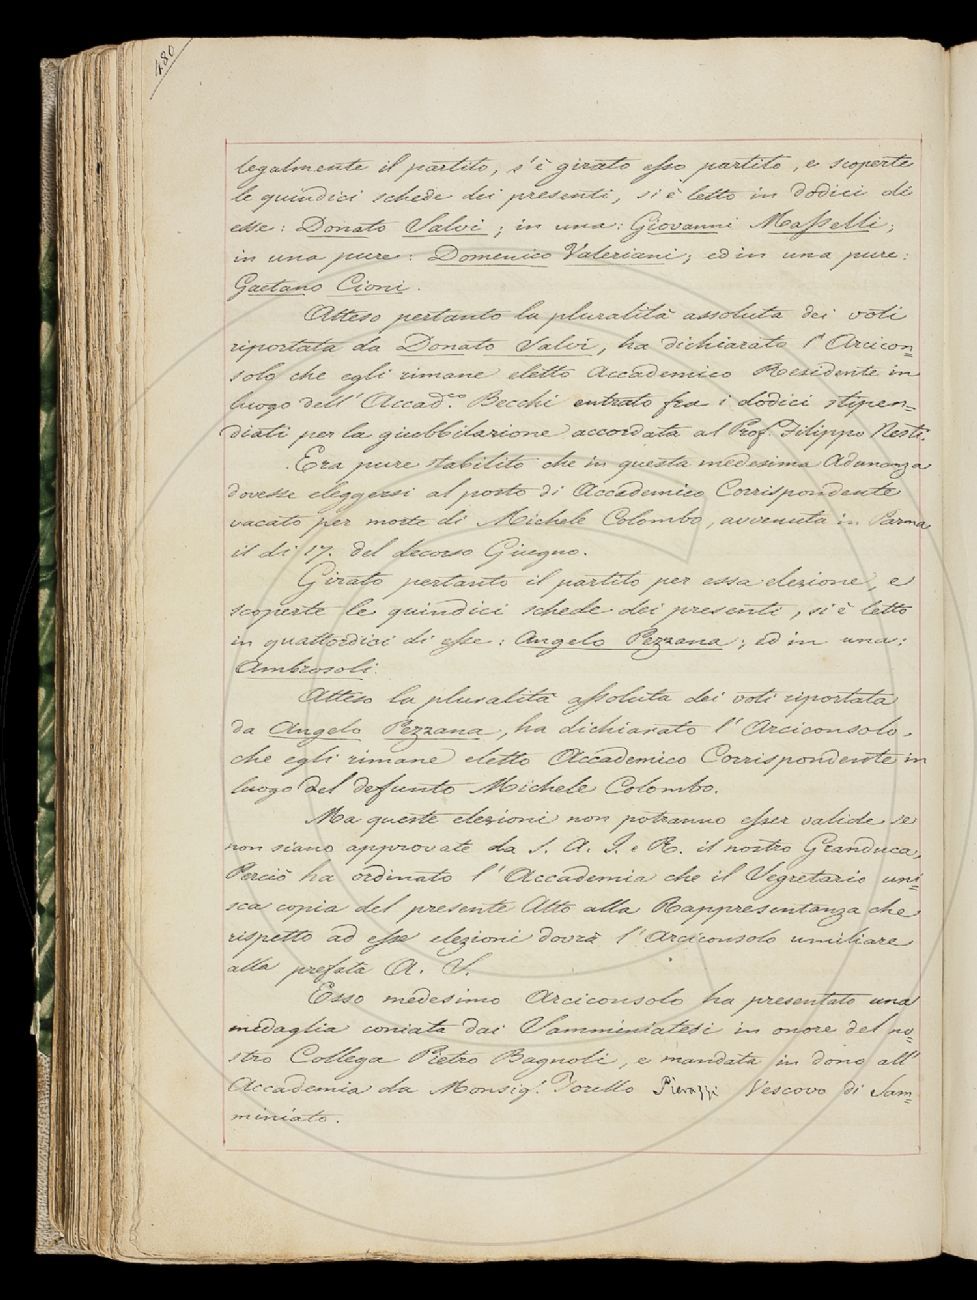 480
legalmente il partito, s'è girato esso partito, e scoperte
le quindici schede dei presenti, si è letto in dodici di
esse: Donato Salvi; in una: Giovanni Masselli;
in una pure: Domenico Valeriani; ed in una pure:
Gaetano Cioni.
Atteso pertanto la pluralità assoluta dei voti
riportata da Donato Salvi, ha dichiarato l'Arcicon=
solo che egli rimane eletto Accademico Residente in
luogo dell'Accad.co Becchi entrato fra i dodici stipen=
diati per la giubbilazione accordata al Prof. Filippo Nesti.
Era pure stabilito che in questa medesima Adunanza
dovesse eleggersi al posto di Accademico Corrispondente
vacato per morte di Michele Colombo, avvenuta in Parma
il di 17. del decorso Giugno.
Girato pertanto il partito per essa elezione, e
scoperte le quindici schede dei presenti, si è letto
in quattordici di esse: Angelo Pezzana; ed in una:
Ambrosoli.
Atteso la pluralità assoluta dei voti riportata
da Angelo Pezzana, ha dichiarato l'Arciconsolo,
che egli rimane eletto Accademico Corrispondente in
luogo del defunto Michele Colombo.
Ma queste elezioni non potranno esser valide se
non siano approvate da S. A. I. e R. il nostro Granduca,
Perciò ha ordinato l'Accademia che il Segretario uni=
sca copia del presente Atto alla Rappresentanza che
rispetto ad esse elezioni dovrà l'Arciconsolo umiliare
alla prefata A. S.
Esso medesimo Arciconsolo ha presentato una
medaglia coniata dai Samminiatesi in onore del no=
stro Collega Pietro Bagnoli, e mandata in dono all'
Accademia da Monsig.r Torello Pierazzi Vescovo di Sam=
miniato.